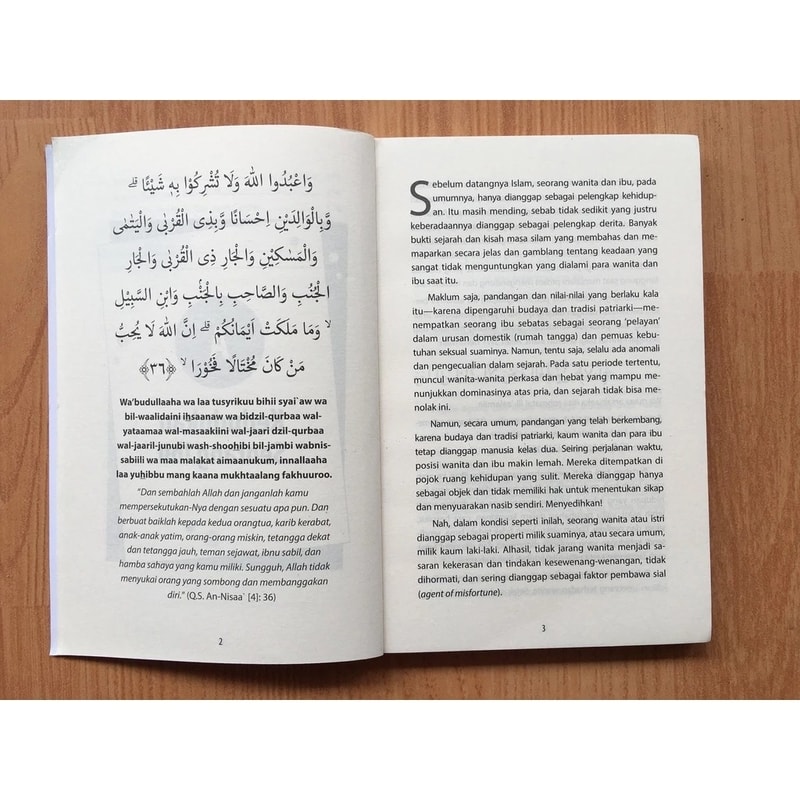 وَاعْبُدُوا اللّٰهَ وَلَا تُشْرِكُوْا بِهٖ شَيْـًٔا ۗ
وَّبِالْوَالِدَيْنِ اِحْسَانًا وَّبِذِى الْقُرْبٰى وَالْيَتٰمٰى
وَالْمَسٰكِيْنِ وَالْجَارِ ذِى الْقُرْبٰى وَالْجَارِ
الْجُنُبِ وَالصَّاحِبِ بِالْجَنْۢبِ وَابْنِ السَّبِيْلِ
ۙ وَمَا مَلَكَتْ اَيْمَانُكُمْ ۗ اِنَّ اللّٰهَ لَا يُحِبُّ
مَنْ كَانَ مُخْتَالًا فَخُوْرًا ۙ ﴿٣٦﴾
Wa'budullaaha wa laa tusyrikuu bihii syai`aw wa
bil-waalidaini iḥsaanaw wa bidzil-qurbaa wal-
yataamaa wal-masaakiini wal-jaari dzil-qurbaa
wal-jaaril-junubi wash-shooḥibi bil-jambi wabnis-
sabiili wa maa malakat aimaanukum, innallaaha
laa yuḥibbu mang kaana mukhtaalang fakhuuroo.
"Dan sembahlah Allah dan janganlah kamu
mempersekutukan-Nya dengan sesuatu apa pun. Dan
berbuat baiklah kepada kedua orangtua, karib kerabat,
anak-anak yatim, orang-orang miskin, tetangga dekat
dan tetangga jauh, teman sejawat, ibnu sabil, dan
hamba sahaya yang kamu miliki. Sungguh, Allah tidak
menyukai orang yang sombong dan membanggakan
diri." (Q.S. An-Nisaa` [4]: 36)
2
Sebelum datangnya Islam, seorang wanita dan ibu, pada
umumnya, hanya dianggap sebagai pelengkap kehidup-
an. Itu masih mending, sebab tidak sedikit yang justru
keberadaannya dianggap sebagai pelengkap derita. Banyak
bukti sejarah dan kisah masa silam yang membahas dan me-
maparkan secara jelas dan gamblang tentang keadaan yang
sangat tidak menguntungkan yang dialami para wanita dan
ibu saat itu.
Maklum saja, pandangan dan nilai-nilai yang berlaku kala
itu—karena dipengaruhi budaya dan tradisi patriarki—me-
nempatkan seorang ibu sebatas sebagai seorang 'pelayan'
dalam urusan domestik (rumah tangga) dan pemuas kebu-
tuhan seksual suaminya. Namun, tentu saja, selalu ada anomali
dan pengecualian dalam sejarah. Pada satu periode tertentu,
muncul wanita-wanita perkasa dan hebat yang mampu me-
nunjukkan dominasinya atas pria, dan sejarah tidak bisa me-
nolak ini.
Namun, secara umum, pandangan yang telah berkembang,
karena budaya dan tradisi patriarki, kaum wanita dan para ibu
tetap dianggap manusia kelas dua. Seiring perjalanan waktu,
posisi wanita dan ibu makin lemah. Mereka ditempatkan di
pojok ruang kehidupan yang sulit. Mereka dianggap hanya
sebagai objek dan tidak memiliki hak untuk menentukan sikap
dan menyuarakan nasib sendiri. Menyedihkan!
Nah, dalam kondisi seperti inilah, seorang wanita atau istri
dianggap sebagai properti milik suaminya, atau secara umum,
milik kaum laki-laki. Alhasil, tidak jarang wanita menjadi sa-
saran kekerasan dan tindakan kesewenang-wenangan, tidak
dihormati, dan sering dianggap sebagai faktor pembawa sial
(agent of misfortune).
3